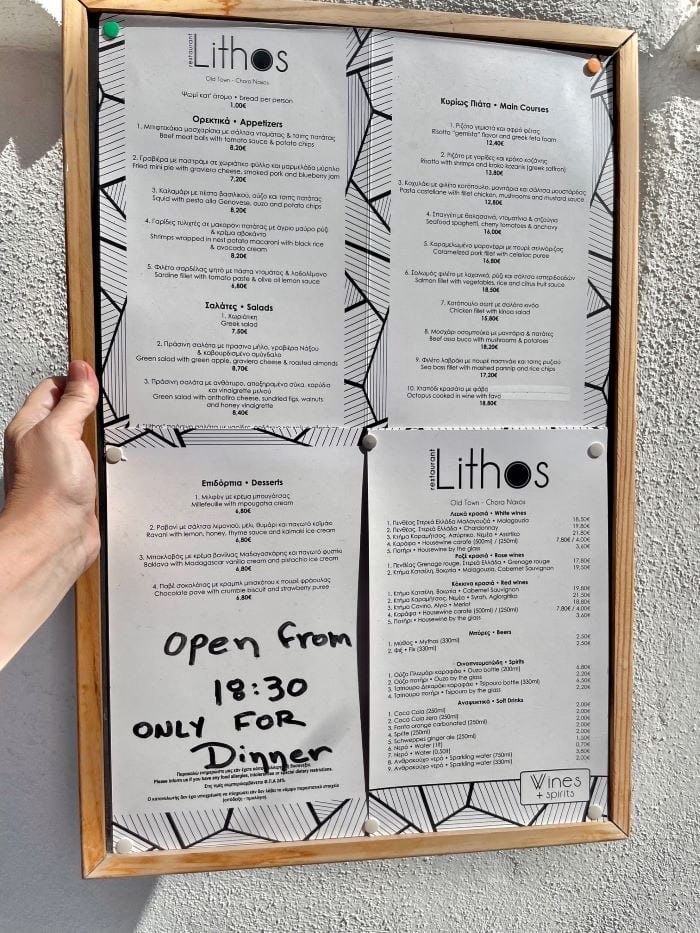 restaurant
Lithos
Old Town - Chora Naxos
Ψωμί κατ' άτομο • bread per person
1,00€
Ορεκτικά • Appetizers
1. Μπιφτεκάκια μοσχαρίσια με σάλτσα ντομάτας & τσιπς πατάτας
Beef meat balls with tomato sauce & potato chips
8,20€
2. Γραβιέρα με παστράμι σε χωριάτικο φύλλο και μαρμελάδα μύρτιλο
Fried mini pie with graviera cheese, smoked pork and blueberry jam
7,20€
3. Καλαμάρι με πέστο βασιλικού, ούζο και τσιπς πατάτας
Squid with pesto alla Genovese, ouzo and potato chips
8,20€
4. Γαρίδες τυλιχτές σε μακαρόνι πατάτας με άγριο μαύρο ρύζι
& κρέμα αβοκάντο
Shrimps wrapped in nest potato macaroni with black rice
& avocado cream
8,20€
5. Φιλέτα σαρδέλας ψητό με πάστα ντομάτας & λαδολέμονο
Sardine fillet with tomato paste & olive oil lemon sauce
6,80€
Σαλάτες • Salads
1. Χωριάτικη
Greek salad
7,50€
2. Πράσινη σαλάτα με πράσινο μήλο, γραβιέρα Νάξου
& καβουρδισμένο αμύγδαλο
Green salad with green apple, graviera cheese & roasted almonds
8,70€
3. Πράσινη σαλάτα με ανθότυρο, αποξηραμένα σύκα, καρύδια
και vinaigrette μελιού
Green salad with anthotiro cheese, sundried figs, walnuts
and honey vinaigrette
8,40€
Κυρίως Πιάτα • Main Courses
1. Ριζότο γεμιστά και αφρό φέτας
Risotto "gemista" flavor and greek feta foam
12,40€
2. Ριζότο με γαρίδες και κρόκο κοζάνης
Risotto with shrimps and kroko kozanis (greek saffron)
13,80€
3. Κοχυλάκι με φιλέτο κοτόπουλο, μανιτάρια και σάλτσα μουστάρδας
Pasta castellane with fillet chicken, mushrooms and mustard sauce
12,80€
4. Σπαγγίνι με θαλασσινά, ντοματίνια & αντζούγια
Seafood spaghetti, cherry tomatoes & anchovy
16,00€
5. Καραμελωμένο ψαρονέφρι με πουρέ σελινόριζας
Caramelized pork fillet with celeriac puree
16,80€
6. Σολωμός φιλέτο με λαχανικά, ρύζι και σάλτσα εσπεριδοειδών
Salmon fillet with vegetables, rice and citrus fruit sauce
18,50€
7. Κοτόπουλο σωτέ με σαλάτα κινόα
Chicken fillet with kinoa salad
15,80€
8. Μοσχάρι οσομπούκο με μανιτάρια & πατάτες
Beef osso buco with mushrooms & potatoes
18,20€
9. Φιλέτο λαβράκι με πουρέ παστινάκι και τσιπς ρυζιού
Sea bass fillet with mashed parsnip and rice chips
17,20€
10. Χταπόδι κρασάτο με φάβα
Octopus cooked in wine with fava
18,80€
Επιδόρπια • Desserts
1. Μιλφέιγ με κρέμα μπουγάτσας
Millefeuille with mpougatsa cream
6,80€
2. Ραβανί με σάλτσα λεμονιού, μέλι, θυμάρι και παγωτό καϊμάκι
Ravani with lemon, honey, thyme sauce and kaimaki ice cream
6,80€
3. Μπακλαβάς με κρέμα βανίλιας Μαδαγασκάρης και παγωτό φυστίκι
Baklava with Madagascar vanilla cream and pistachio ice cream
6,80€
4. Παβέ σοκολάτας με κραμπλ μπισκότου κ πουρέ φράουλας
Chocolate pave with crumble biscuit and strawberry puree
6,80€
Open from
18:30
ONLY FOR
Dinner
Please inform us if you have any food allergies, intolerances or special dietary restrictions.
Στις τιμές συμπεριλαμβάνεται Φ.Π.Α 24%
Ο καταναλωτής δεν έχει υποχρέωση να πληρώσει εάν δεν λάβει το νόμιμο παραστατικό στοιχείο
(απόδειξη - τιμολόγιο)
restaurant
Lithos
Old Town - Chora Naxos
Λευκά κρασιά • White wines
1. Πενθέας Στερεά Ελλάδα Μαλαγουζιά • Malagouzia 18,50€
2. Πενθέας, Στερεά Ελλάδα • Chardonnay 19,80€
3. Κτήμα Καραμήτσος, Ασύρτικο, Νεμέα • Assirtiko 21,80€
4. Καράφα • Housewine carafe (500ml) / (250ml) 7,80€ / 4,00€
5. Ποτήρι • Housewine by the glass 3,60€
Ροζέ κρασιά • Rose wines
1. Πενθέας Grenage rouge, Στερεά Ελλάδα • Grenage rouge 17,80€
2. Κτήμα Κατσέλη, Βοιωτία • Malagouzia, Cabernet Sauvignon 19,50€
Κόκκινα κρασιά • Red wines
1. Κτήμα Κατσέλη, Βοιωτία • Cabernet Sauvignon 19,80€
2. Κτήμα Καραμήτσος, Νεμέα • Syrah, Agiorgitiko 21,50€
3. Κτήμα Cavino, Αίγιο • Merlot 18,80€
4. Καράφα • Housewine carafe (500ml) / (250ml) 7,80€ / 4,00€
5. Ποτήρι • Housewine by the glass 3,60€
Μπύρες • Beers
1. Μύθος • Mythos (330ml) 2,50€
2. Φιξ • Fix (330ml) 2,50€
Οινοπνευματώδη • Spirits
1. Ούζο Πλωμάρι καραφάκι • Ouzo bottle (200ml) 6,80€
2. Ούζο ποτήρι • Ouzo by the glass 2,20€
3. Τσίπουρο Δεκαράκι καραφάκι • Tsipouro bottle (330ml) 6,50€
4. Τσίπουρο ποτήρι • Tsipouro by the glass 2,20€
Αναψυκτικά • Soft Drinks
1. Coca Cola (250ml) 2,00€
2. Coca Cola zero (250ml) 2,00€
3. Fanta orange carbonated (250ml) 2,00€
4. Sprite (250ml) 2,00€
5. Schweppes ginger ale (250ml) 2,00€
6. Νερό • Water (1lt) 1,50€
7. Νερό • Water (0.50lt) 0,70€
8. Ανθρακούχο νερό • Sparkling water (750ml) 3,80€
9. Ανθρακούχο νερό • Sparkling water (330ml) 2,00€
Wines
+ spirits